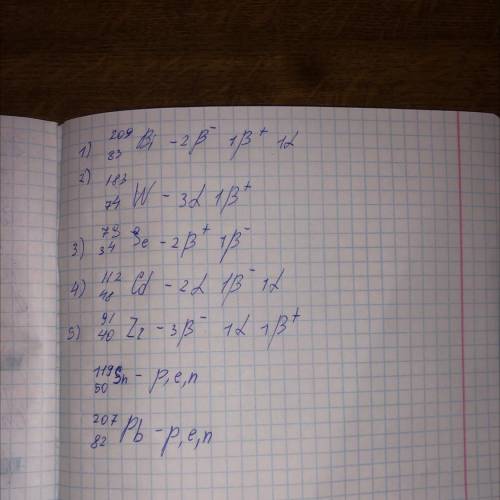 1) ²⁰⁹₈₃Bi - 2β⁻ 1β⁺ 1α
2) ¹⁸³₇₄W - 3α 1β⁺
3) ⁷⁹₃₄Se - 2β⁺ 1β⁻
4) ¹¹²₄₈Cd - 2α 1β⁻ 1α
5) ⁹¹₄₀Zr - 3β⁻ 1α 1β⁺
¹¹⁹₅₀Sn - p, e, n
²⁰⁷₈₂Pb - p, e, n